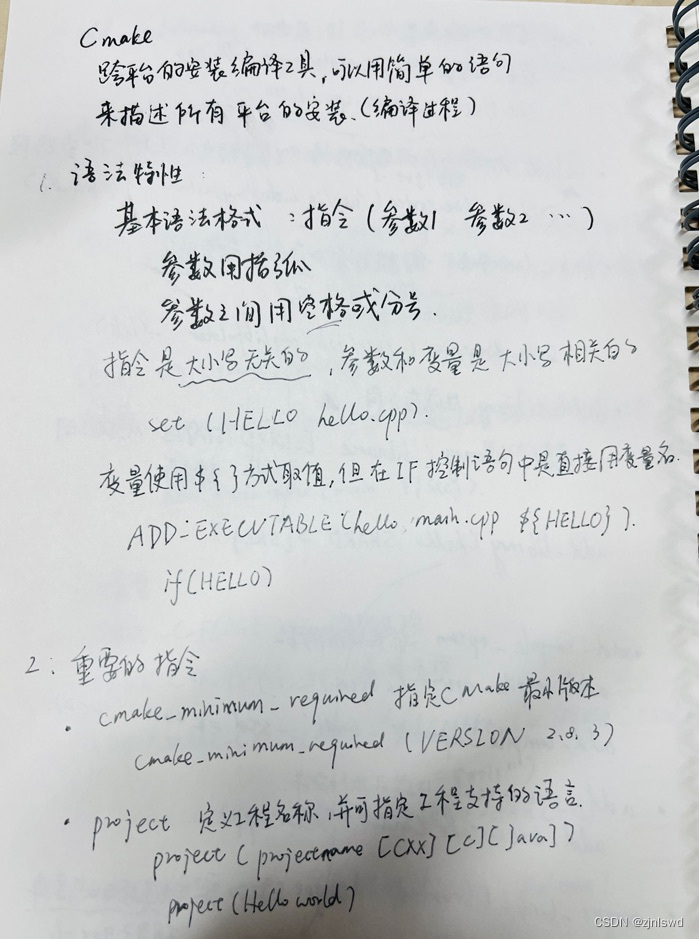 Cmake
跨平台的安装编译工具,可以用简单的语句
来描述所有平台的安装.(编译过程)
1. 语法特性:
基本语法格式 :指令(参数1 参数2 …)
参数用括弧
参数之间用空格或分号.
指令是大小写无关的,参数和变量是大小写相关的
set (HELLO hello.cpp).
变量使用${}方式取值,但在IF控制语句中是直接用变量名.
ADD_EXECUTABLE(hello main.cpp ${HELLO}).
if(HELLO)
2: 重要的指令
· cmake_minimum_required 指定CMake最小版本
cmake_minimum_required (VERSION 2.8.3)
· project 定义工程名称,并可指定工程支持的语言.
project (projectname [CXX] [C] [Java])
project(Helloworld)
CSDN @zjnlswd